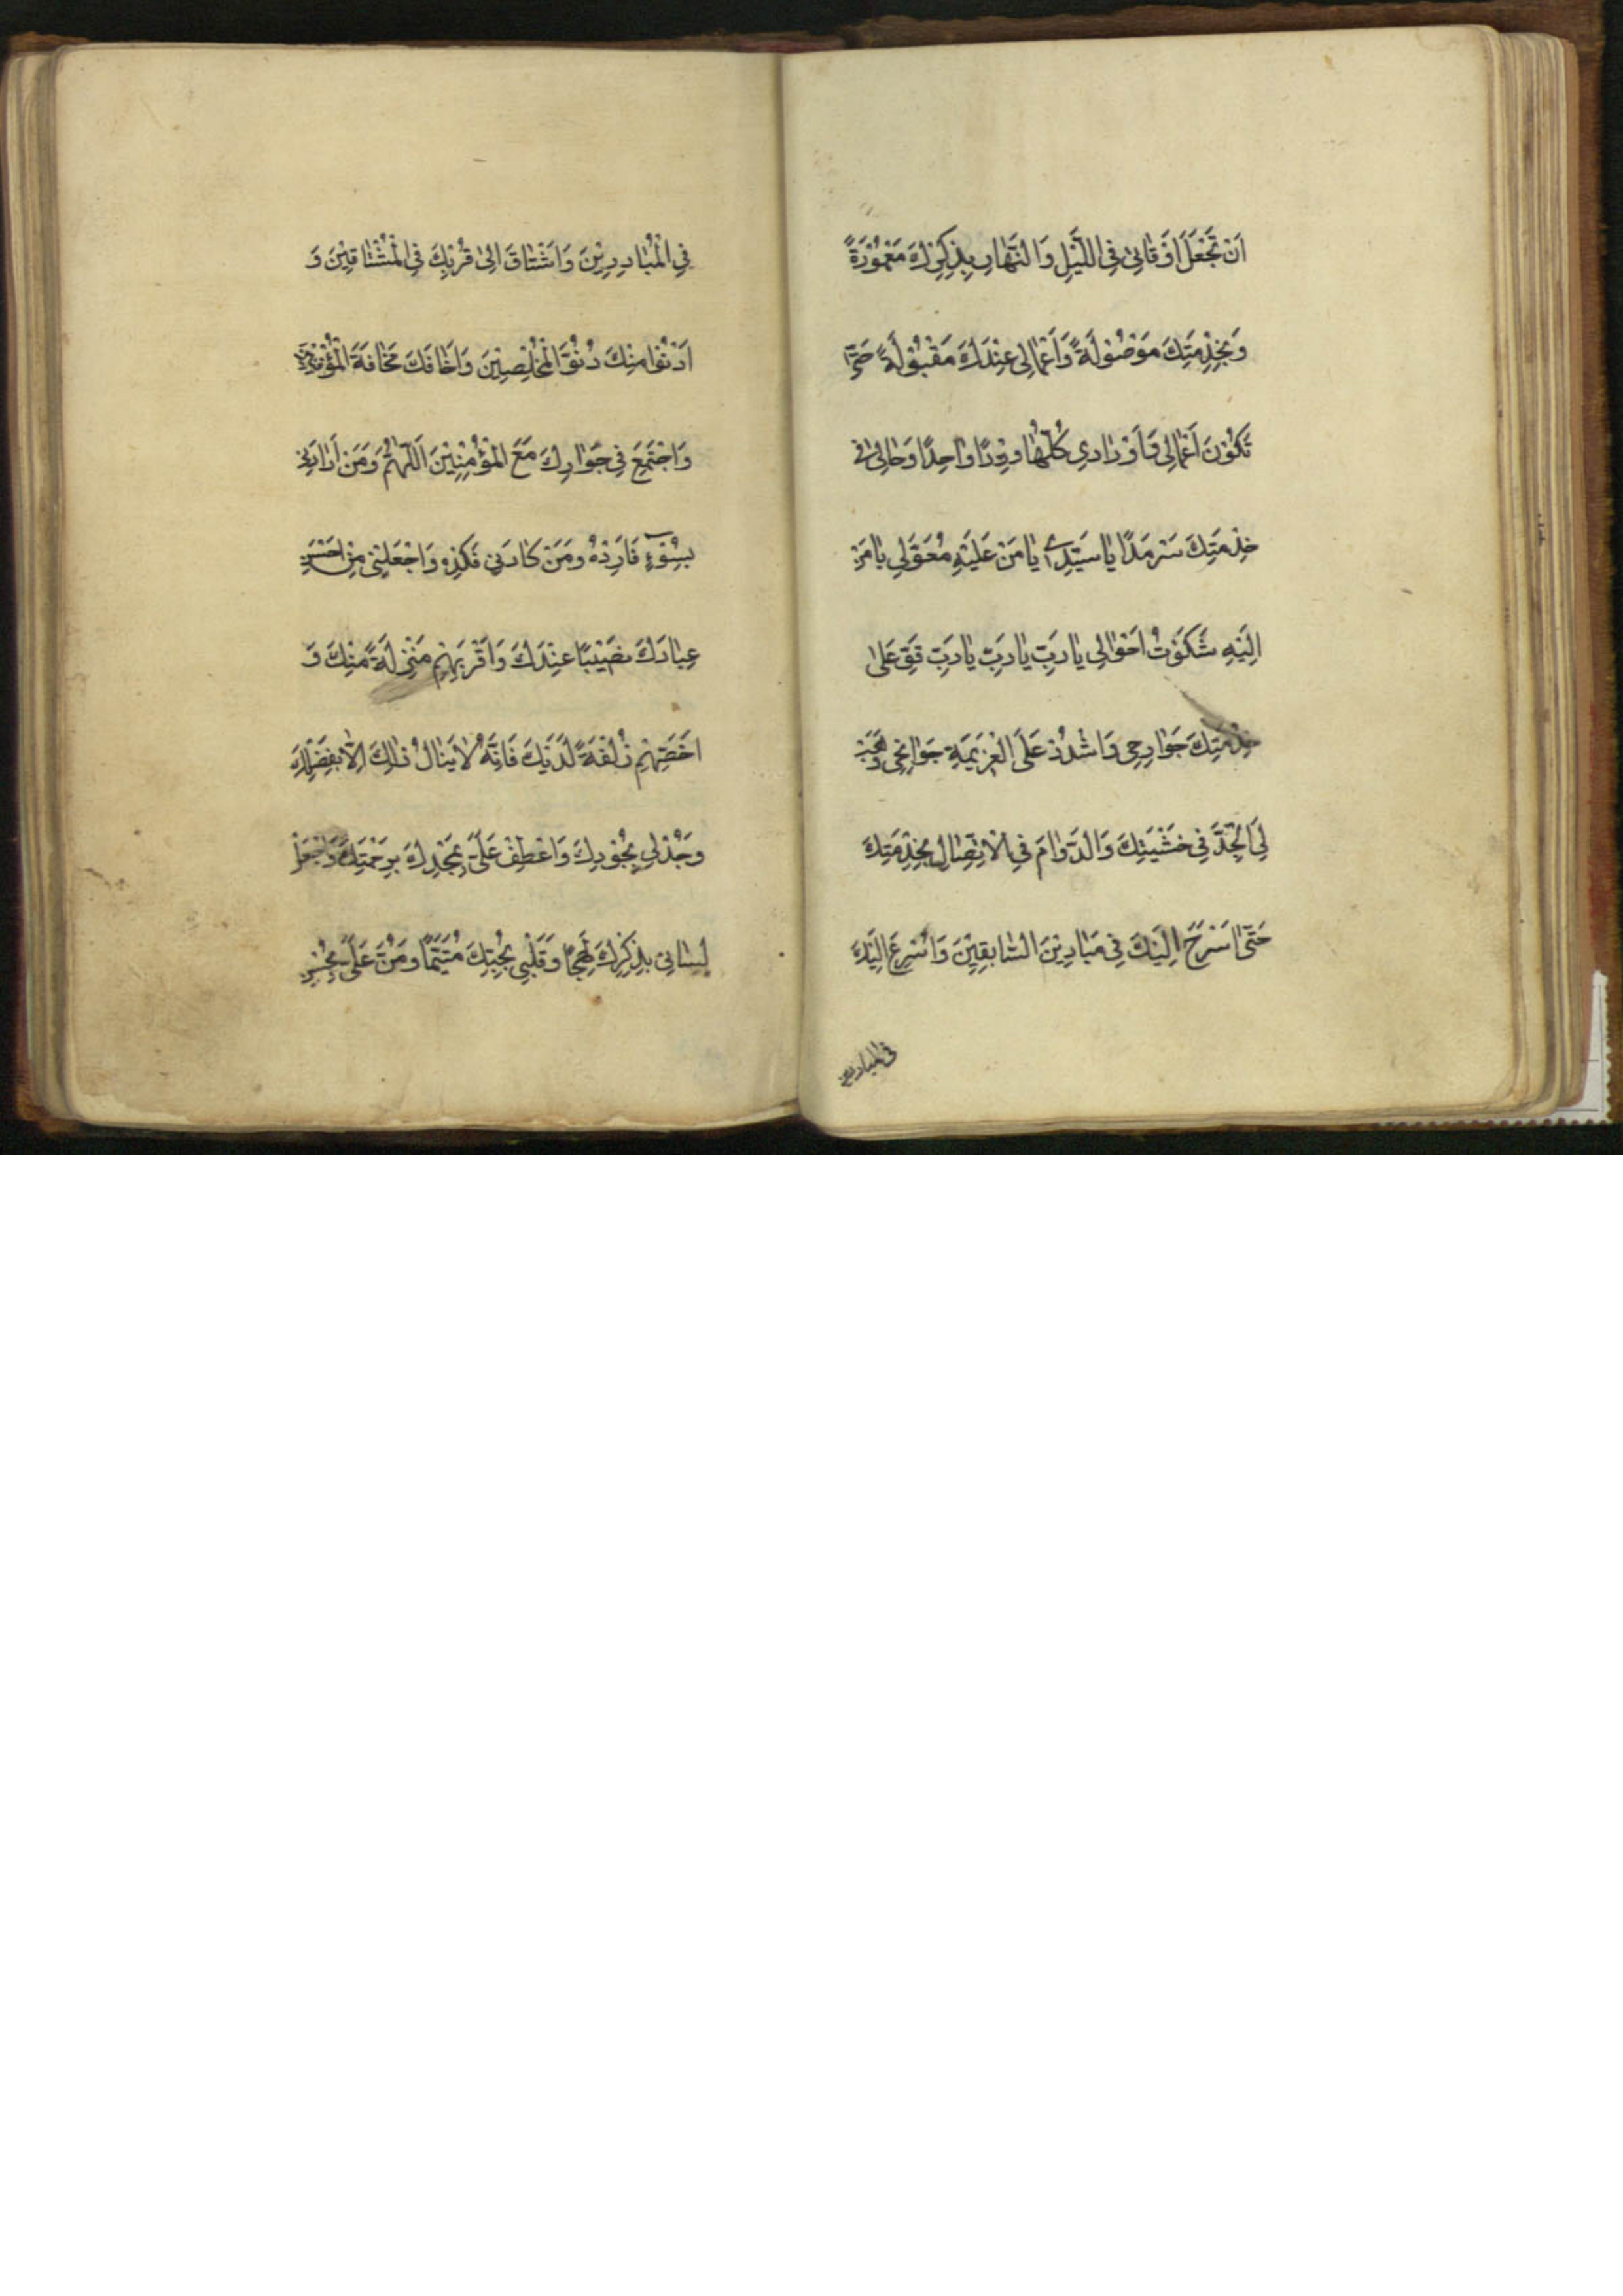 اَنْ تَجْعَلَ اَوْقَاتِىْ فِى اللَّيْلِ وَ النَّهَارِ بِذِكْرِكَ مَعْمُوْرَةً
وَ بِخِدْمَتِكَ مَوْصُوْلَةً وَ اَعْمَالِى عِنْدَكَ مَقْبُوْلَةً حَتَّى
تَكُوْنَ اَعْمَالِى وَ اَوْرَادِى كُلُّهَا وِرْدًا وَاحِدًا وَحَالِىْ فِى
خِدْمَتِكَ سَرْمَدًا يَا سَيِّدِى يَا مَنْ عَلَيْهِ مُعَوَّلِى يَا مَنْ
اِلَيْهِ شَكَوْتُ اَحْوَالِى يَا رَبِّ يَا رَبِّ يَا رَبِّ قَوِّ عَلٰى
خِدْمَتِكَ جَوَارِحِى وَ اشْدُدْ عَلَى الْعَزِيْمَةِ جَوَانِحِى وَهَبْ
لِىَ الْجِدَّ فِى خَشْيَتِكَ وَ الدَّوَامَ فِى الْاِتِّصَالِ بِخِدْمَتِكَ
حَتّٰى اَسْرَحَ اِلَيْكَ فِى مَيَادِيْنَ السَّابِقِيْنَ وَ اُسْرِعَ اِلَيْكَ
فى المبادرين
فِى الْمُبَادِرِيْنَ وَ اَشْتَاقَ اِلٰى قُرْبِكَ فِى الْمُشْتَاقِيْنَ وَ
اَدْنُوَا مِنْكَ دُنُوَّ الْمُخْلِصِيْنَ وَ اَخَافَكَ مَخَافَةَ الْمُؤْقِنِيْنَ
وَ اَجْتَمِعَ فِى جَوَارِكَ مَعَ الْمُؤْمِنِيْنَ اَللّٰهُمَّ وَ مَنْ اَرَادَنِى
بِسُوْءٍ فَاَرِدْهُ وَ مَنْ كَادَنِى فَكِدْهُ وَ اجْعَلْنِى مِنْ اَحْسَنِ
عِبَادِكَ نَصِيْبًا عِنْدَكَ وَ اَقْرَبِهِمْ مَنْزِلَةً مِنْكَ وَ
اَخَصِّهِمْ زُلْفَةً لَدَيْكَ فَاِنَّهُ لَا يَنَالُ ذٰلِكَ اِلَّا بِفَضْلِكَ
وَ جُدْ لِى بِجُوْدِكَ وَ اعْطِفْ عَلَىَّ بِمَجْدِكَ بِرَحْمَتِكَ وَ اجْعَلْ
لِسَانِى بِذِكْرِكَ لَهِجًا وَ قَلْبِى بِحُبِّكَ مُتَيَّمًا وَ مُنَّ عَلَىَّ بِحُسْنِ